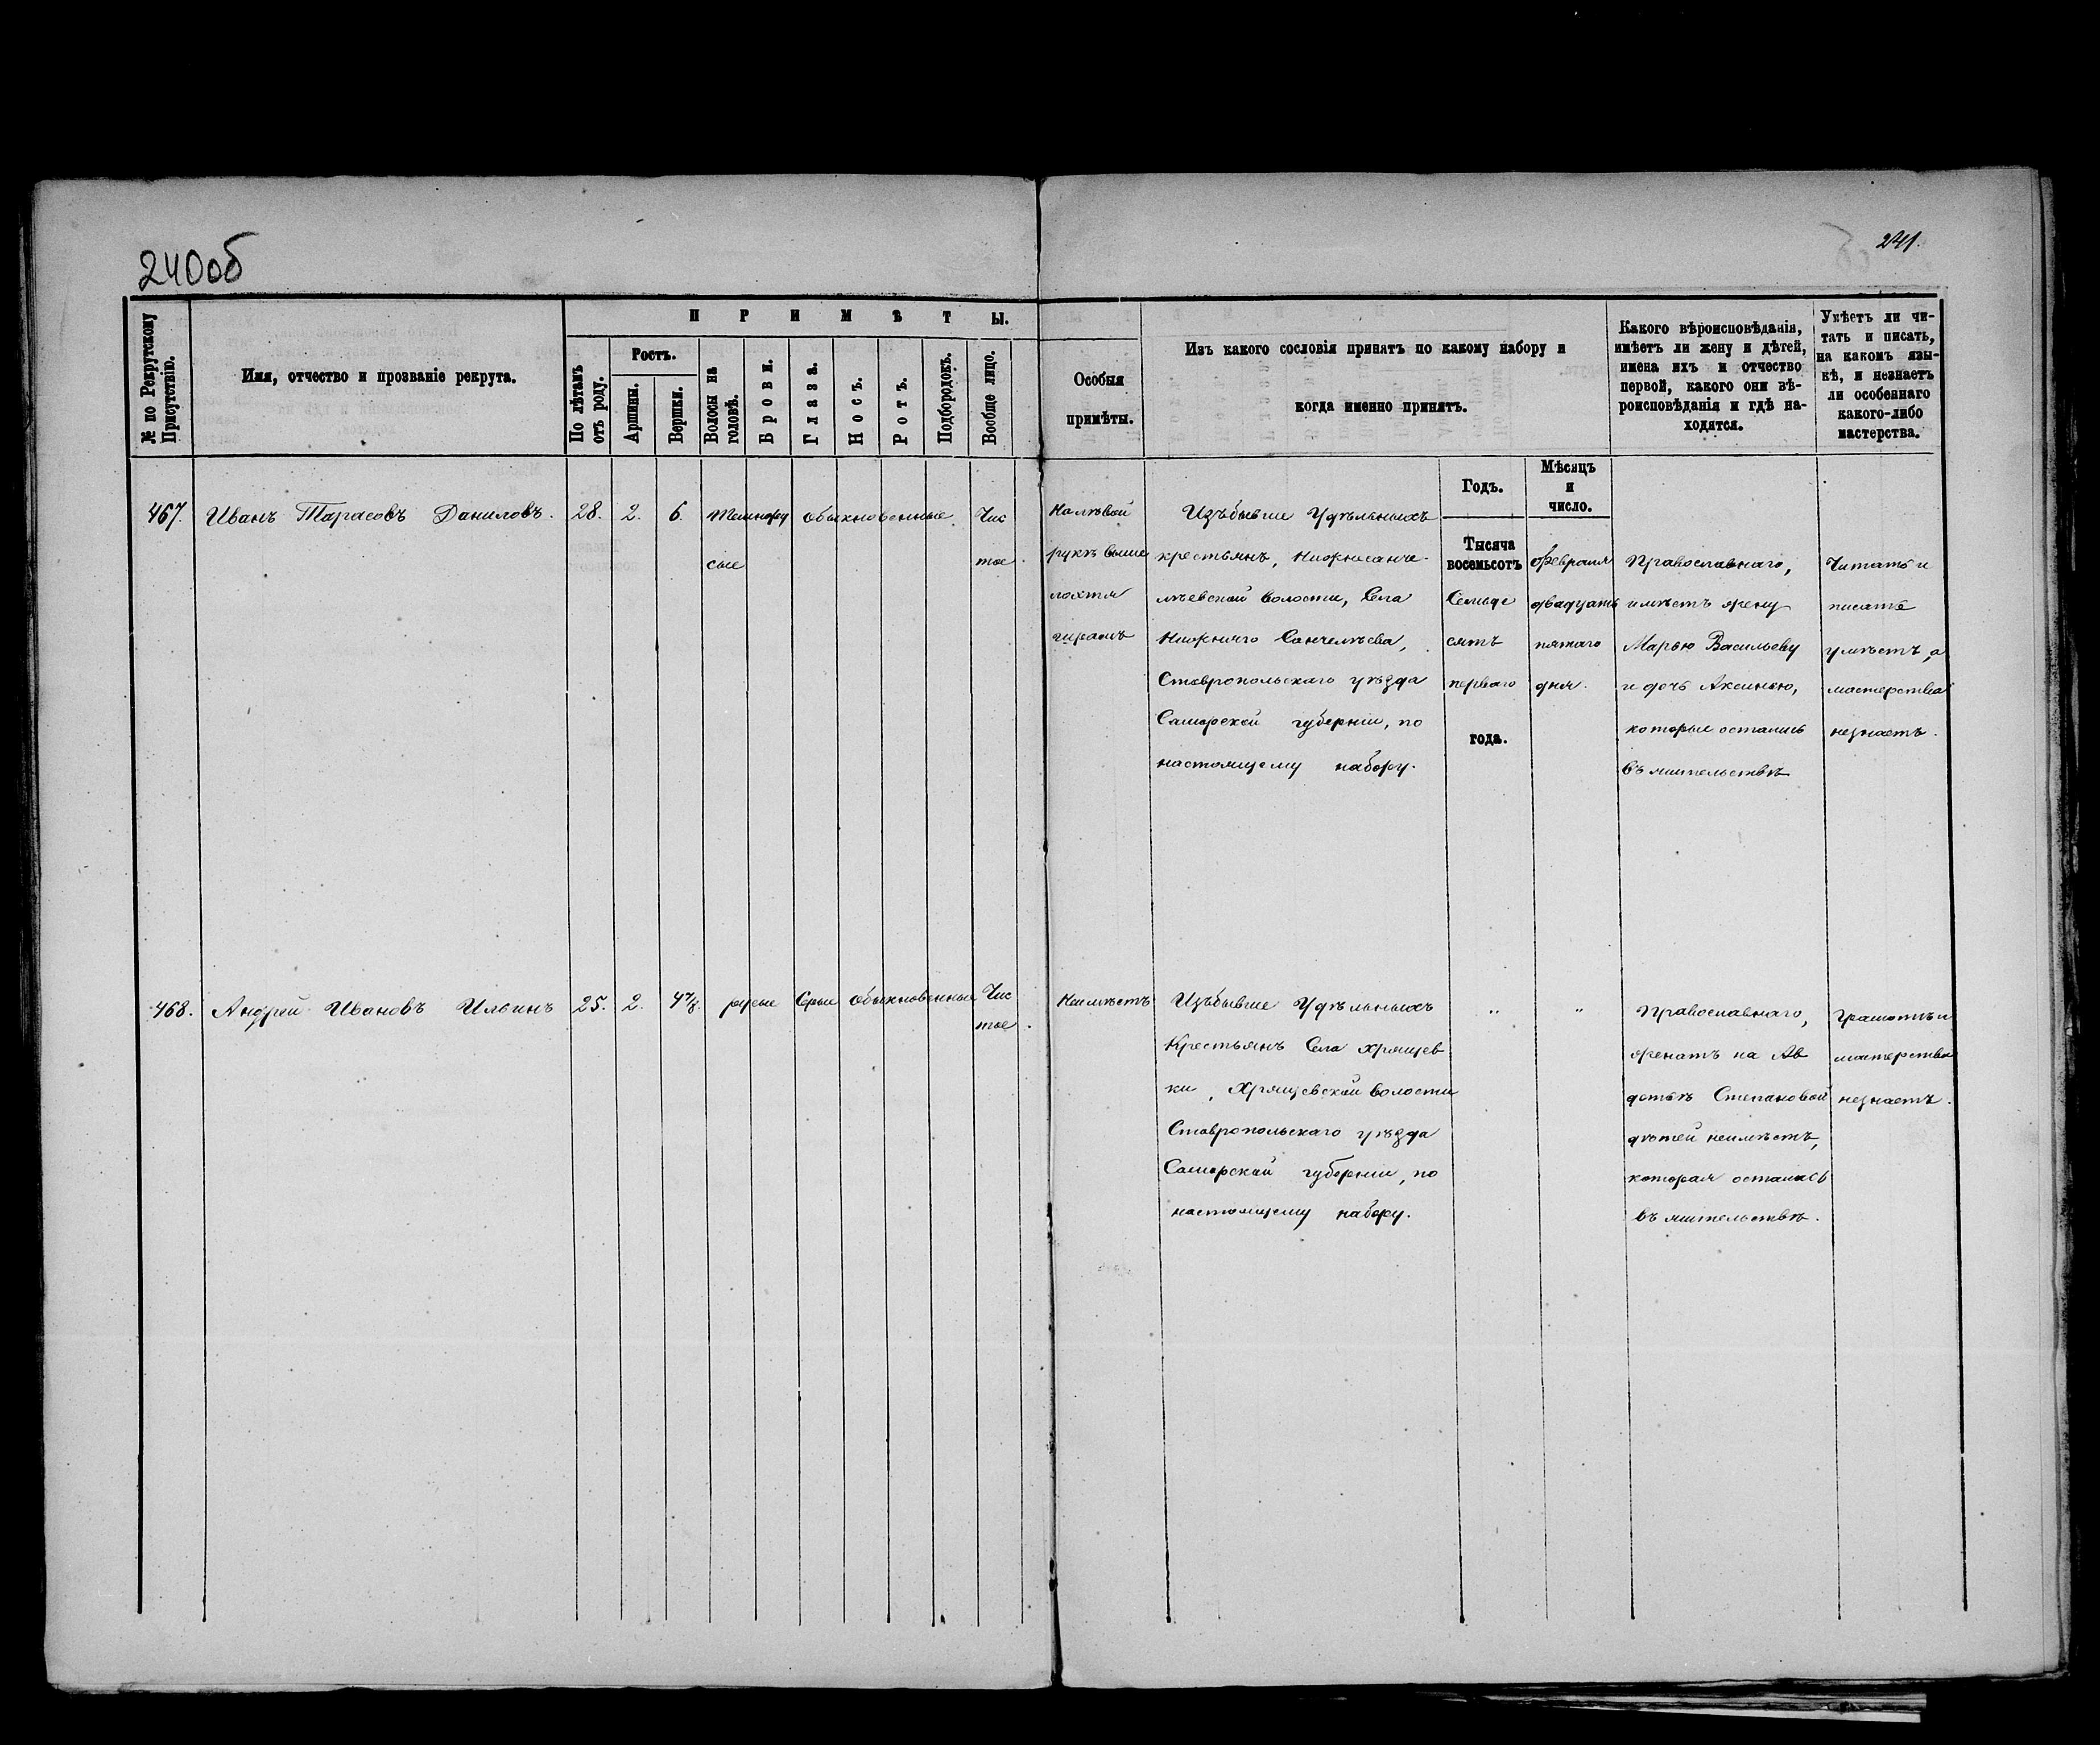 240об
241.
№ по Рекрутскому Присутствію.
Имя, отчество и прозваніе рекрута.
ПРИМѢТЫ.
По лѣтамъ отъ роду.
Ростъ.
Аршины.
Вершки.
Волосы на головѣ.
Брови.
Глаза.
Носъ.
Ротъ.
Подбородокъ.
Вообще лицо.
Особыя
примѣты.
Изъ какого сословія принятъ по какому набору и
когда именно принятъ.
Какого вѣроисповѣданія,
имѣетъ ли жену и дѣтей,
имена ихъ и отчество
первой, какого они вѣ-
роисповѣданія и гдѣ на-
ходятся.
Умѣетъ ли чи-
тать и писать,
на какомъ язы-
кѣ, и незнаетъ
ли особеннаго
какого-либо
мастерства.
467.
Иванъ Тарасовъ Даниловъ.
28.
2.
6.
темнору
сые
обыкновенные
Чис
тое
На лѣвой
рукѣ выше
локтя
шрамъ
Изъ бывше Удѣльныхъ
крестьянъ, Нижнесанче-
лѣевской волости, Села
Нижняго Санчелѣева,
Ставропольскаго уѣзда
Самарской губерніи, по
настоящему набору.
Годъ.
Тысяча
восемьсотъ
Семьде
сятъ
перваго
года.
Мѣсяцъ
и
число.
февраля
двадцать
пятаго
дня.
Православнаго,
имѣетъ жену
Марью Васильеву
и дочь Аксинью,
которые остались
въ жительствѣ
Читать и
писать
умѣетъ, а
мастерства
незнаетъ.
468.
Андрей Ивановъ Ильинъ
25.
2.
4 7/8.
русые
Серые
обыкновенные
Чис
тое
Неимѣетъ
Изъ бывше Удѣльныхъ
Крестьянъ Села Хрящев
ки, Хрящевской волости
Ставропольскаго уѣзда
Самарской губерніи, по
настоящему набору.
"
"
Православнаго,
женатъ на Ав
дотьѣ Степановой
дѣтей неимѣетъ,
которая осталась
въ жительствѣ.
Грамотѣ и
мастерства
незнаетъ.